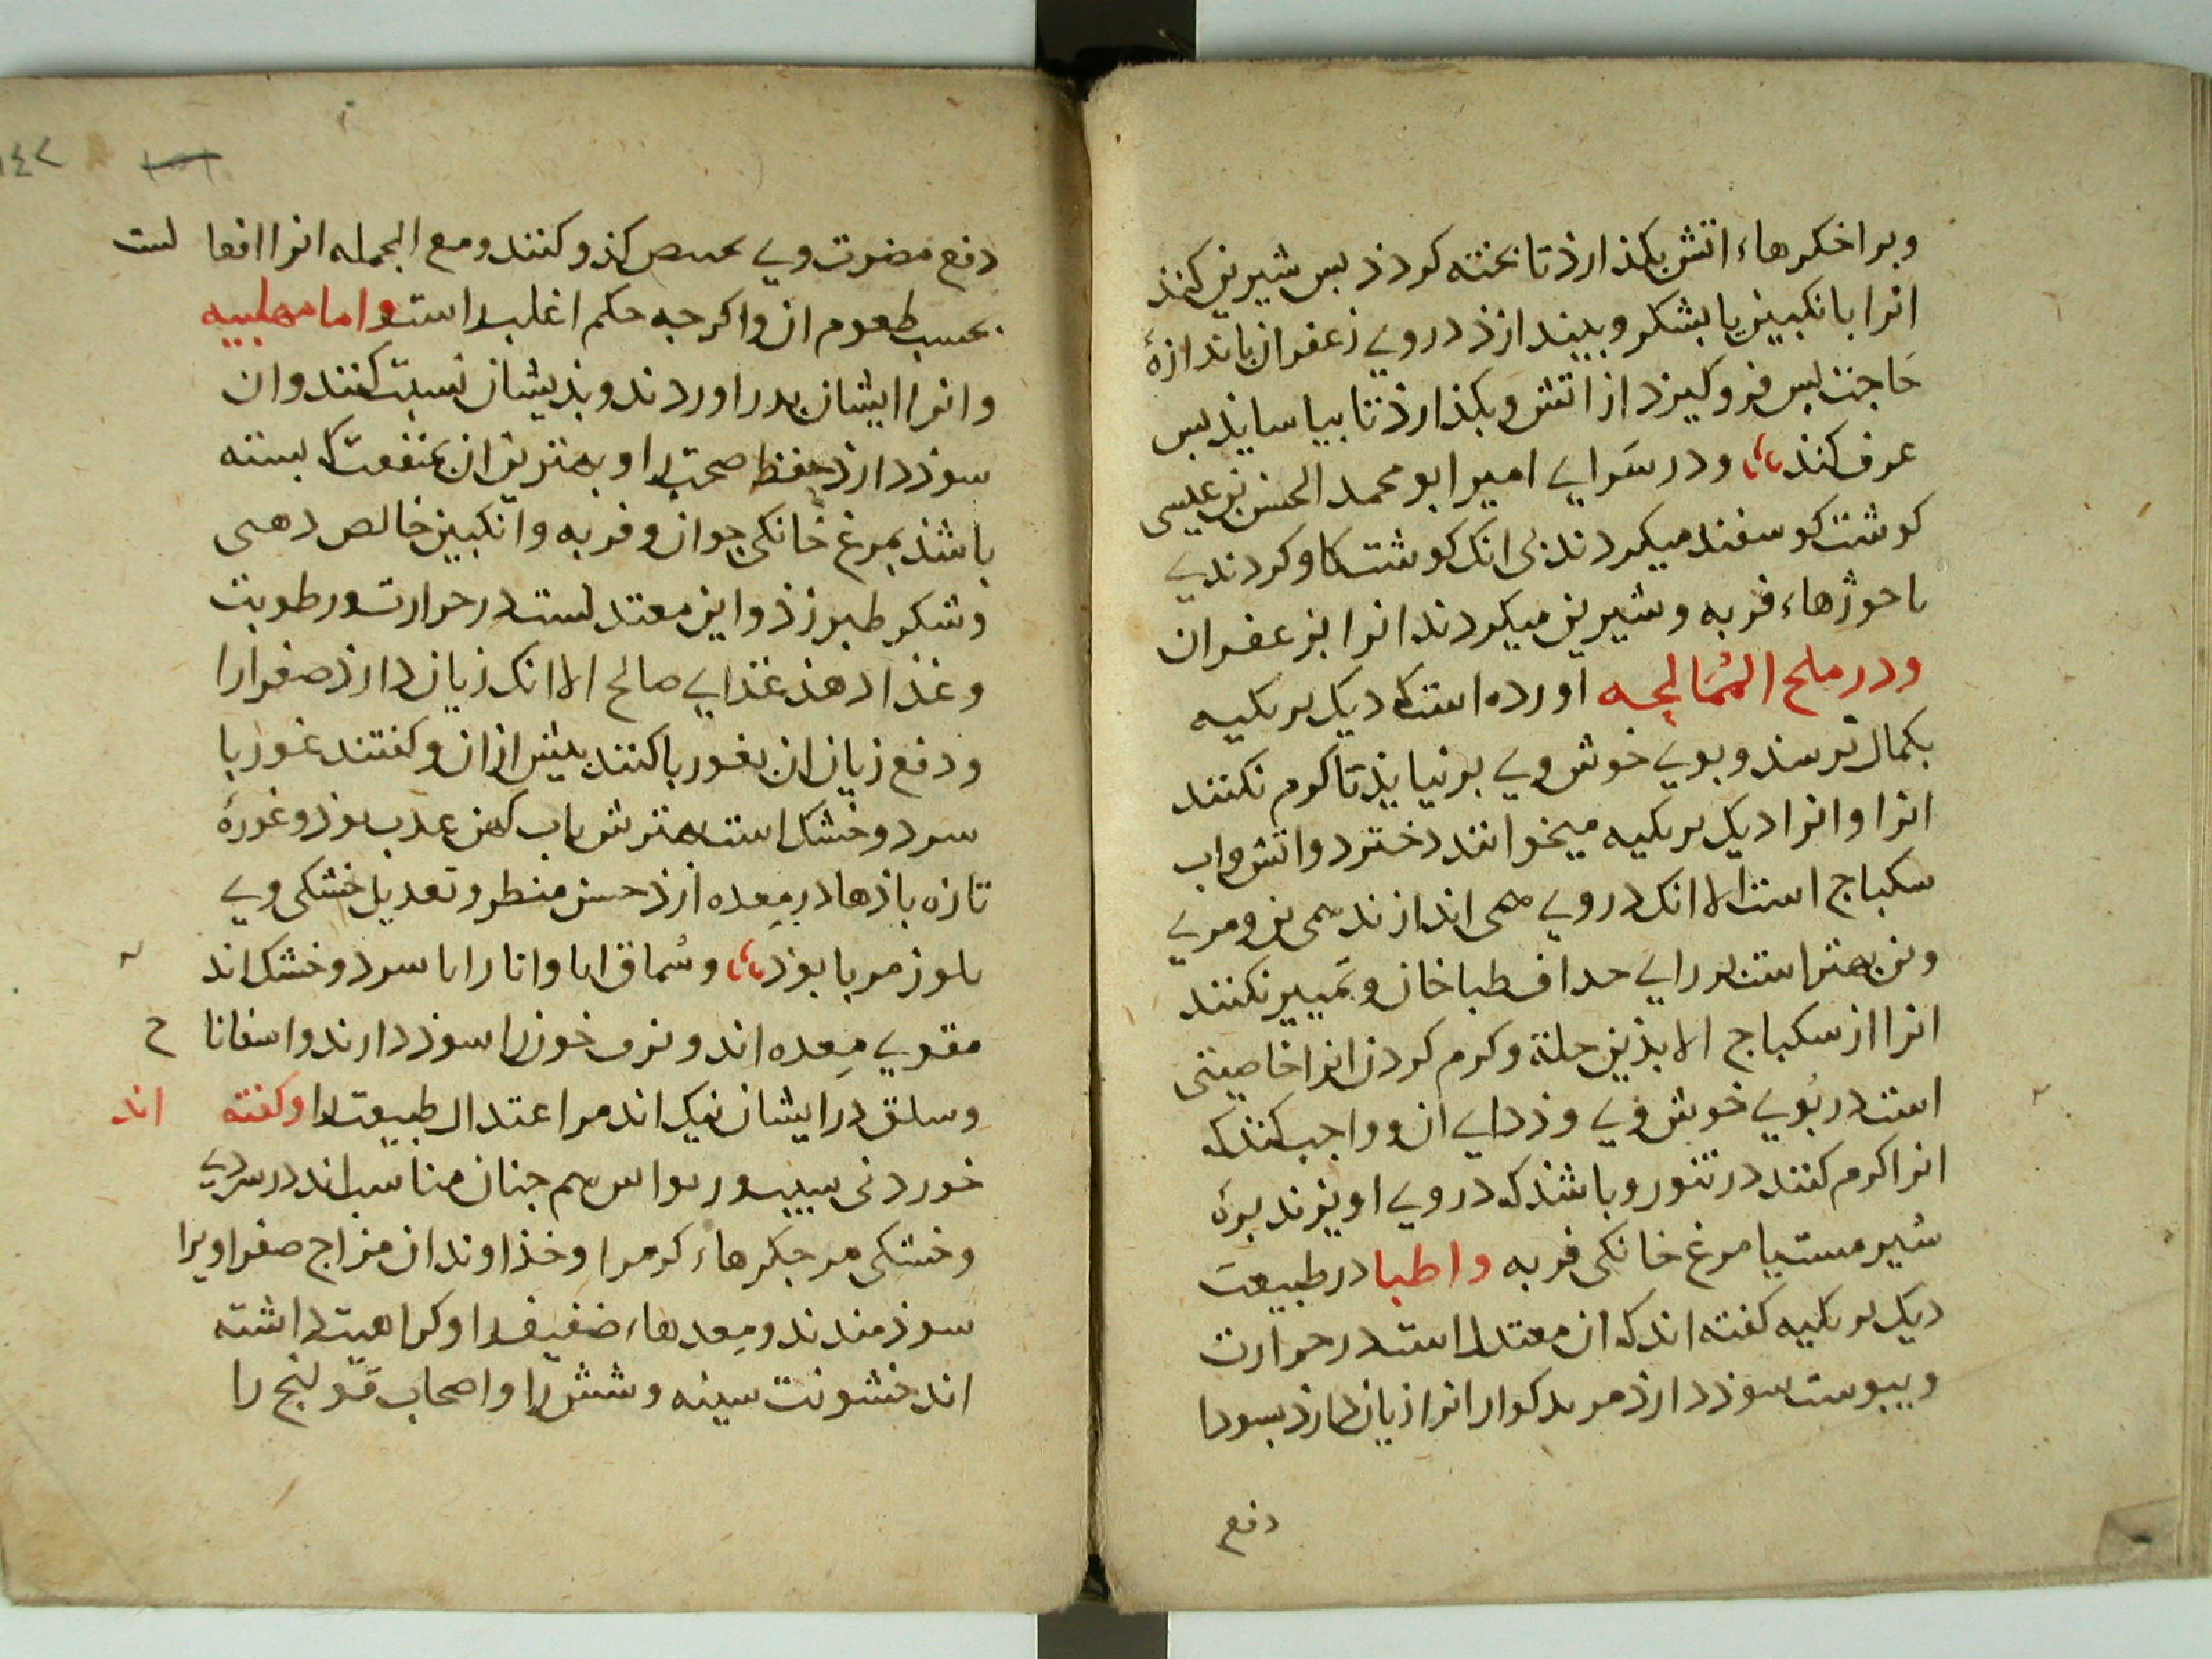 وبر اخکرهاء اتش بکذارذ تا بخته کردذ بس شیرین کنذ
انرا بانکبین یا بشکر وبیندازذ در وی زعفران باندازهٔ
حاجت بس فرو کیرد از اتش و بکذارذ تا بیاسایذ بس
غرف کنذ ودر سرای امیر ابو محمد الحسن بن عیسی
کوشت کوسفند میکردند بی انک کوشت کاو کردندی
با جوژهاء فربه وشیرین میکردند انرا بزعفران
ودر ملح الممالحه اورده است که دیک بریکیه
بکمال نرسد و بوی خوش وی برنیایذ تا کرم نکنند
انرا وانرا دیک بریکیه میخوانند دختر دو اتش واب
سکباج است الا انک در وی همی اندازند همی بن ومری
وبن بهتر است برای حذاق طباخان وتمییز نکنند
انرا از سکباج الا بذین جلة وکرم کردن انرا خاصیتی
است در بوی خوش وی وذدای ان وواجب کنذ که
انرا کرم کنند در تنور وباشذ که در وی اویزند برهٔ
شیر مست یا مرغ خانکی فربه واطبا در طبیعت
دیک بریکیه کفته اند که ان معتدل است در حرارت
ویبوست سوذ دارذ مر بدکوار انرا زیان دارذ بسودا
دفع
١٤٢
دفع مضرت وی کنند ومع الجمله انرا افعا لست
بحسب طعوم ان واکرجه حکم اغلب راست واما مهلبیه
وانرا ایشان بدر اوردند وبذیشان نسبت کنند وان
سوذ دارذ حفظ صحت را وبهترین ان بمنفعت که بسته
باشذ بمرغ خانکی جوان وفربه وانکبین خالص دهنی
وشکر طبرزذ واین معتدلست در حرارت ورطوبت
وغذا دهذ غذای صالح الا انک زیان دارذ صفرا را
ودفع زیان ان بغوربا کنند بیش از ان وکفتند غوربا
سرد وخشک است بهترش باب کهن عذب بوذ وغورهٔ
تازه باذها در معده ارذ حسن منظر وتعدیل خشکی وی
بلوز مربا بوذ وسماق ابا وانار ابا سرد وخشک اند
مقوی معده اند ونزف خون را سوذ دارند واسفانا ح
وسلق در ایشان نیک اند مر اعتدال طبیعت را وکفته اند
خوردنی سیب وریواس هم جنان مناسب اند در سردی
وخشکی مر جکرهاء کرم را وخذاوندان مزاج صفراوی را
سوذمندند ومعدهاء ضعیف را وکراهیت داشته
اند خشونت سینه وشش را واصحاب قولنج را